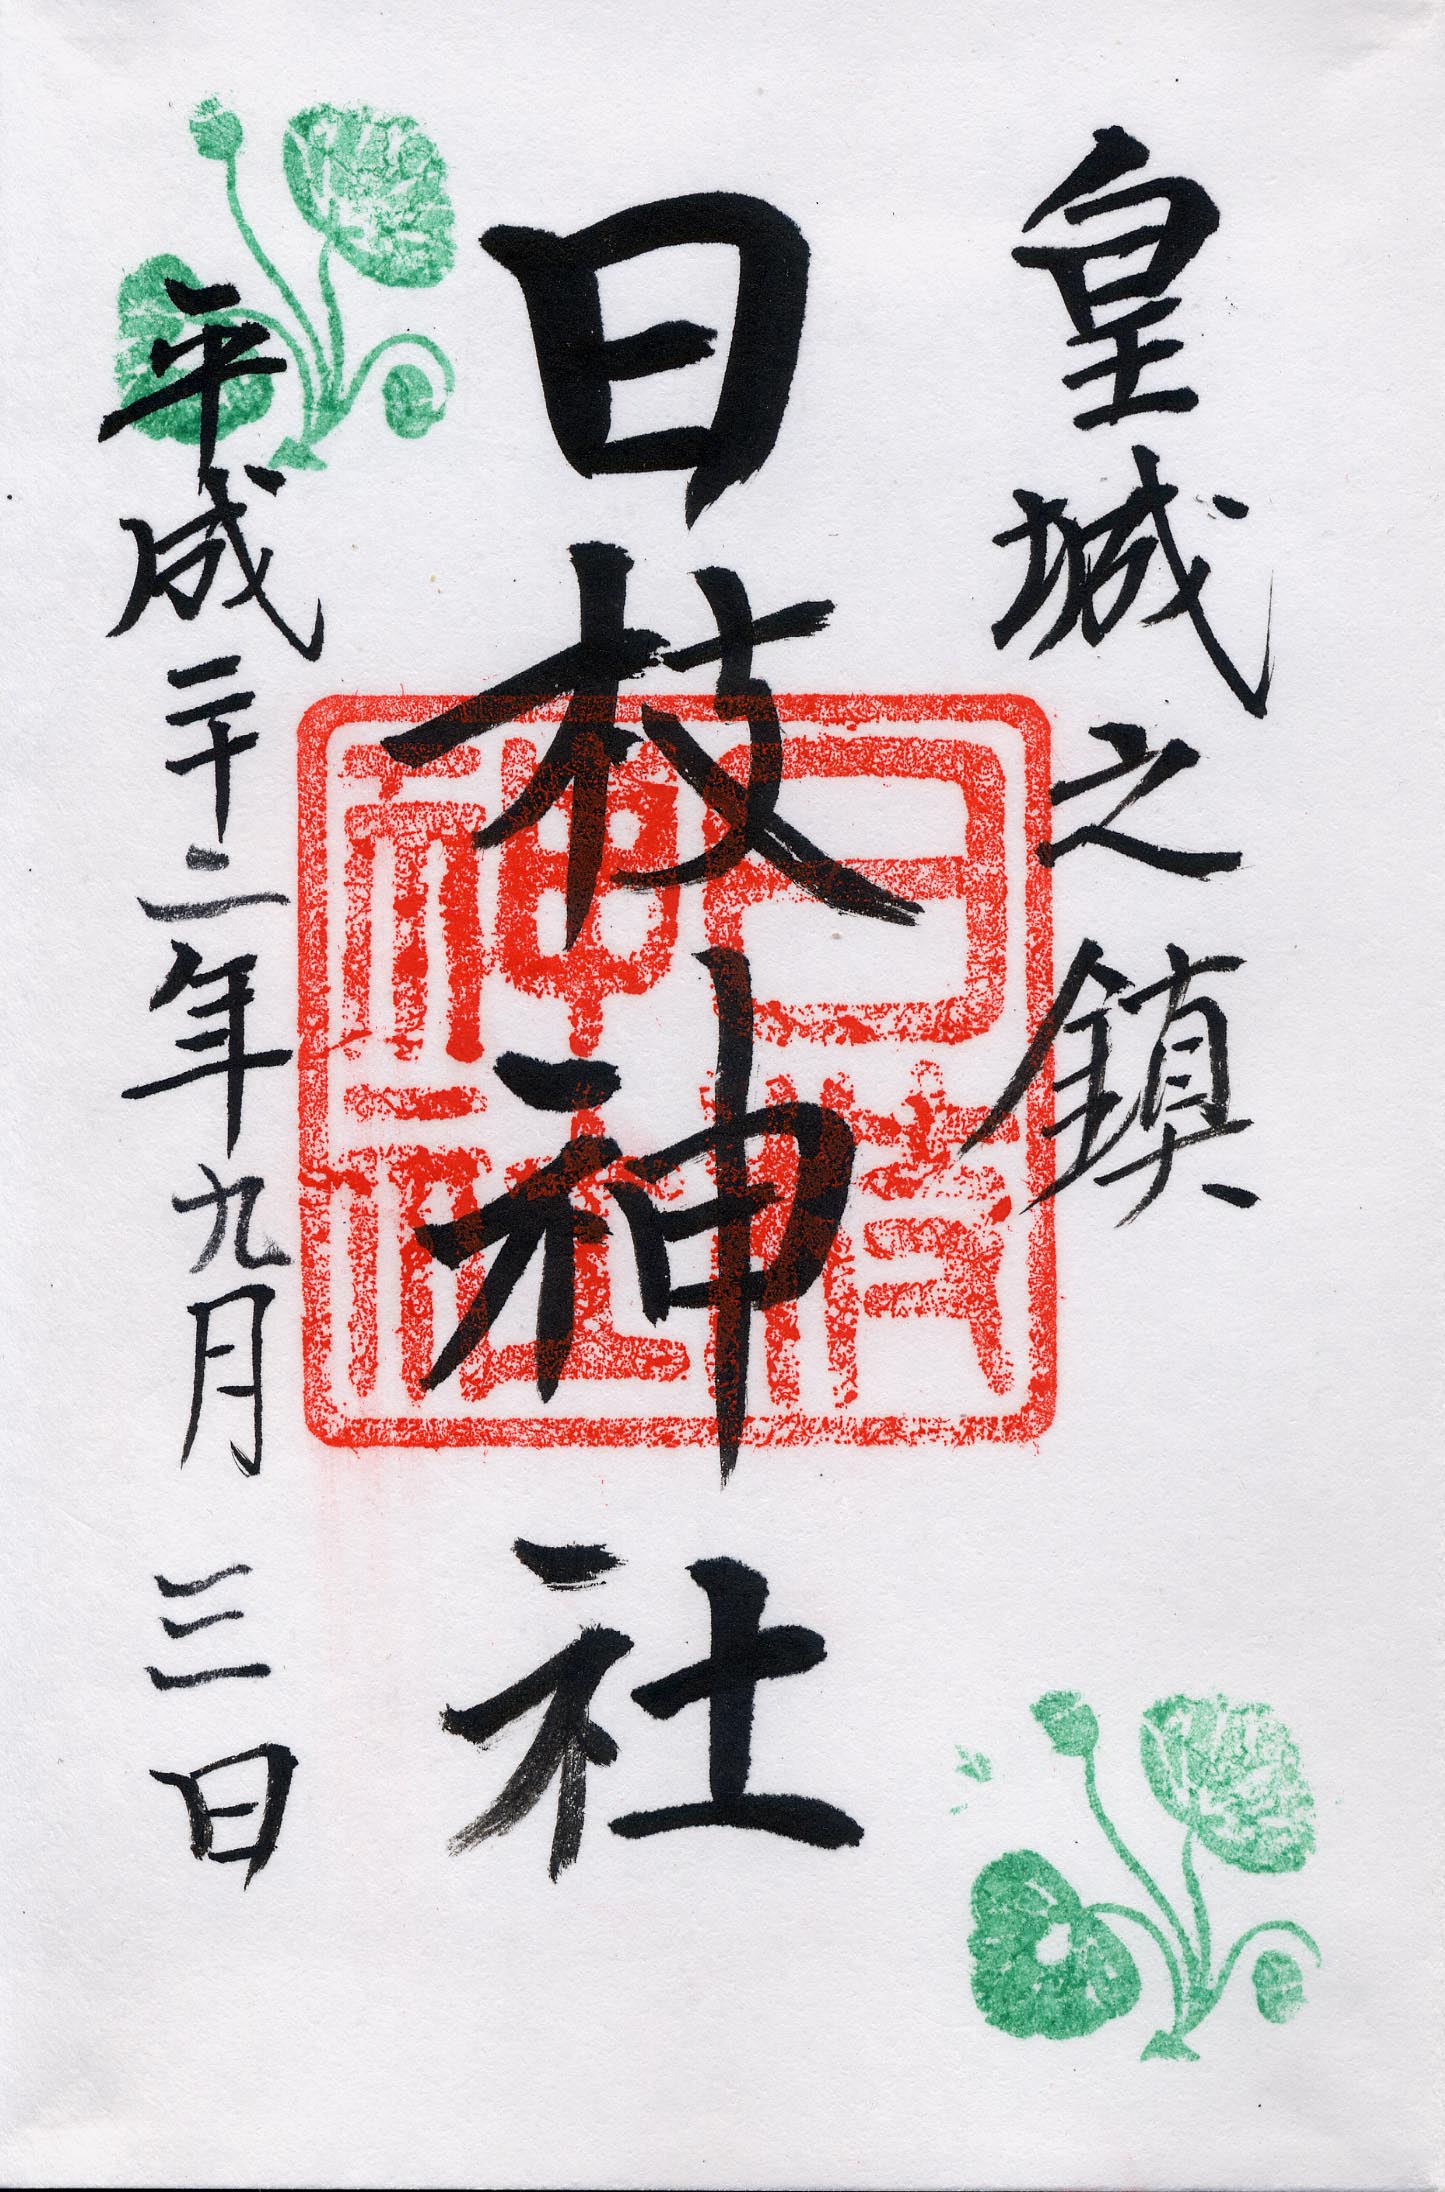 皇城之鎮
日枝神社
日枝神社
平成二十二年九月三日